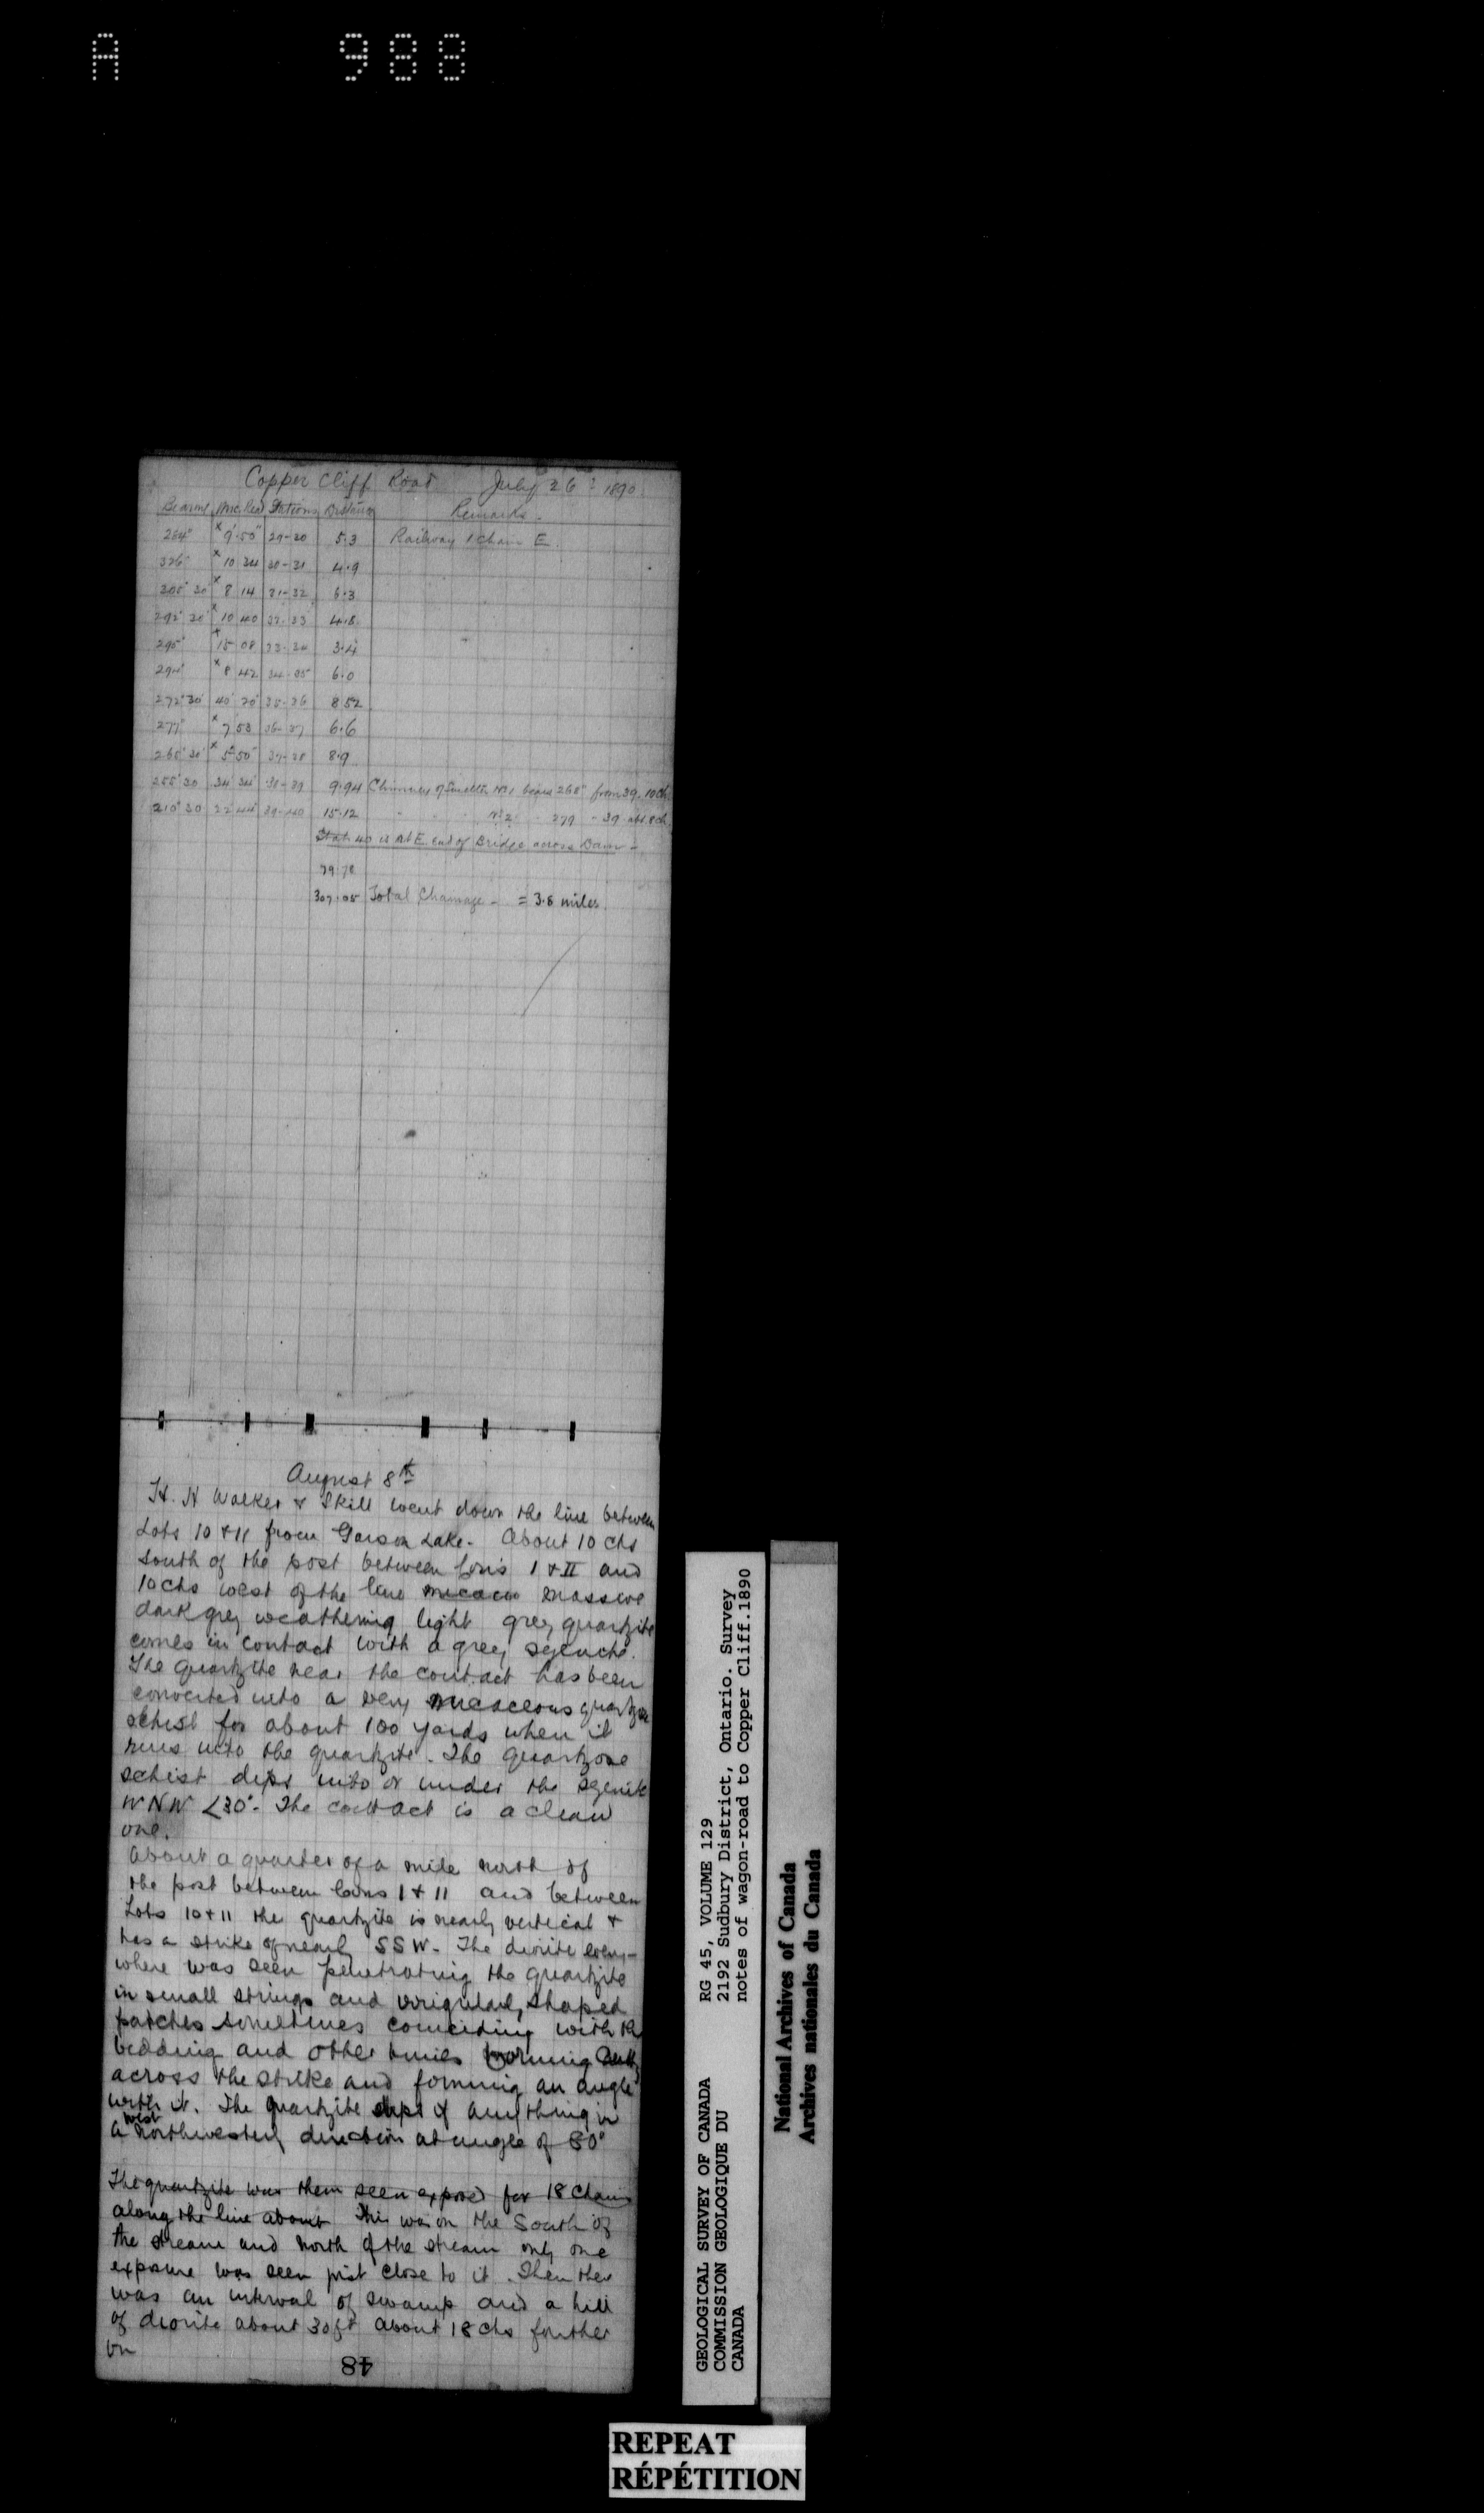 A 988
Copper Cliff Road July 26th 1890
Bearing Mic. Read Stations Distance Remarks.
284° x 9' 50" 29-30 5.3 Railway 1 chain E.
326° x 10 34 30-31 4.9
305° 30' x 8 14 31-32 6.3
292° 30' x 10 40 32-33 4.8
295° x 15 08 33-34 3.4
294° x 8 42 34-35 6.0
272° 30' 40' 20" 35-36 8 52
277° x 7 53 36-37 6.6
265° 30' x 5 50" 37-38 8.9
255° 30 34' 34" 38-39 9.94 Chimney of Smelter No 1 bears 268° from 39. 10 Ch
210° 30 22 44" 39-40 15.12 " " " No 2 " 279 - 39 abt. 8 ch
Stat. 40 is at E. end of Bridge across Dam -
79.78
307.05 Total Chainage - = 3.8 miles
August 8th
H. N Walker & Skill went down the line between
Lots 10 & 11 from Garson Lake. About 10 chs
South of the post between Con's I & II and
10 chs west of the line massive
dark grey weathering light grey quartzite
comes in contact with a grey syenite.
The quartzite near the contact has been
converted into a very micaceous quartzose
schist for about 100 yards when it
runs into the quartzite. The quartzose
schist dips into or under the syenite
WNW <30°. The contact is a clean
one.
About a quarter of a mile north of
the post between Cons 1 & 11 and between
Lots 10 & 11 the quartzite is nearly vertical &
has a strike of nearly SSW. The diorite every-
where was seen penetrating the quartzite
in small strings and irregularly shaped
patches sometimes coinciding with the
bedding and other times
across the strike and forming an angle
with it. The quartzite dips if anything in
a west northwesterly direction at angle of 80°
The quartzite was then seen exposed for 18 chains
along the line about This was on the South of
the stream and north of the stream only one
exposure was seen just close to it. Then there
was an interval of swamp and a hill
of diorite about 30 ft about 18 chs further
on
48
RG 45, VOLUME 129
2192 Sudbury District, Ontario. Survey
notes of wagon-road to Copper Cliff.1890
GEOLOGICAL SURVEY OF CANADA
COMMISSION GEOLOGIQUE DU
CANADA
National Archives of Canada
Archives nationales du Canada
REPEAT
RÉPÉTITION